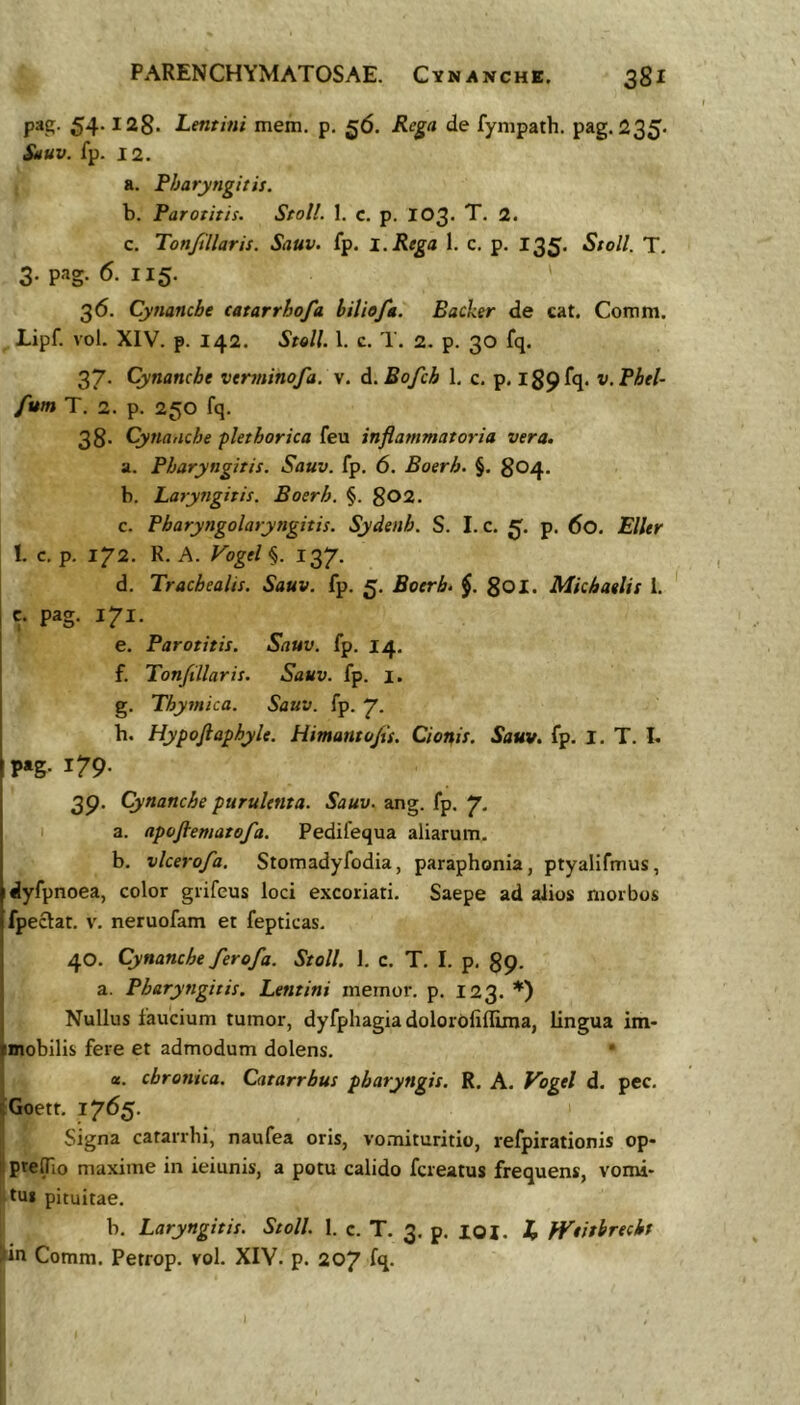 PARENCHYMATOSAE. CYNANCHE. 381
pag. 54. 128. Lentini mem. p. 56. Rega de ſympath. pag. 235.
Sauv. ſp. 12.
a. Pharyngitis.
b. Parotitis. Stoll. l. c. p. 103. T. 2.
c. Tonſillaris. Sauv. ſp. 1. Rega l. c. p. 135. Stoll. T.
3. pag. 6. 115.
36. Cynanche catarrhoſa bilioſa. Backer de cat. Comm.
Lipſ. vol. XIV. p. 142. Stoll. l. c. T. 2. p. 30 ſq.
37. Cynanche verminoſa. v. d. Boſch l. c. p. 189 ſq. v. Phel-
ſum T. 2. p. 250 ſq.
38. Cynanche plethorica ſeu inflammatoria vera.
a. Pharyngitis. Sauv. ſp. 6. Boerh. §. 804.
b. Laryngitis. Boerh. §. 802.
c. Pharyngolaryngitis. Sydenh. S. I. c. 5. p. 60. Eller
l. c. p. 172. R. A. Vogel §. 137.
d. Trachealis. Sauv. ſp. 5. Boerh. §. 801. Michaelis l.
c. pag. 171.
e. Parotitis. Sauv. ſp. 14.
f. Tonſillaris. Sauv. ſp. 1.
g. Thymica. Sauv. ſp. 7.
h. Hypoſtaphyle. Himantoſis. Cionis. Sauv. ſp. 1. T. I.
pag. 179.
39. Cynanche purulenta. Sauv. ang. ſp. 7.
a. apoſtematoſa. Pediſequa aliarum.
b. vlceroſa. Stomadyſodia, paraphonia, ptyaliſmus,
dyſpnoea, color griſeus loci excoriati. Saepe ad alios morbos
ſpectat. v. neruoſam et ſepticas.
40. Cynanche ſeroſa. Stoll. l. c. T. I. p. 89.
a. Pharyngitis. Lentini memor. p. 123. *)
Nullus faucium tumor, dyſphagia doloroſiſſima, lingua im-
mobilis fere et admodum dolens.
α. chronica. Catarrhus pharyngis. R. A. Vogel d. pec.
Goett. 1765.
Signa catarrhi, nauſea oris, vomituritio, reſpirationis op-
preſſio maxime in ieiunis, a potu calido ſcreatus frequens, vomi-
tus pituitae.
b. Laryngitis. Stoll. l. c. T. 3. p. 101. Weitbrecht
in Comm. Petrop. vol. XIV. p. 207 ſq.